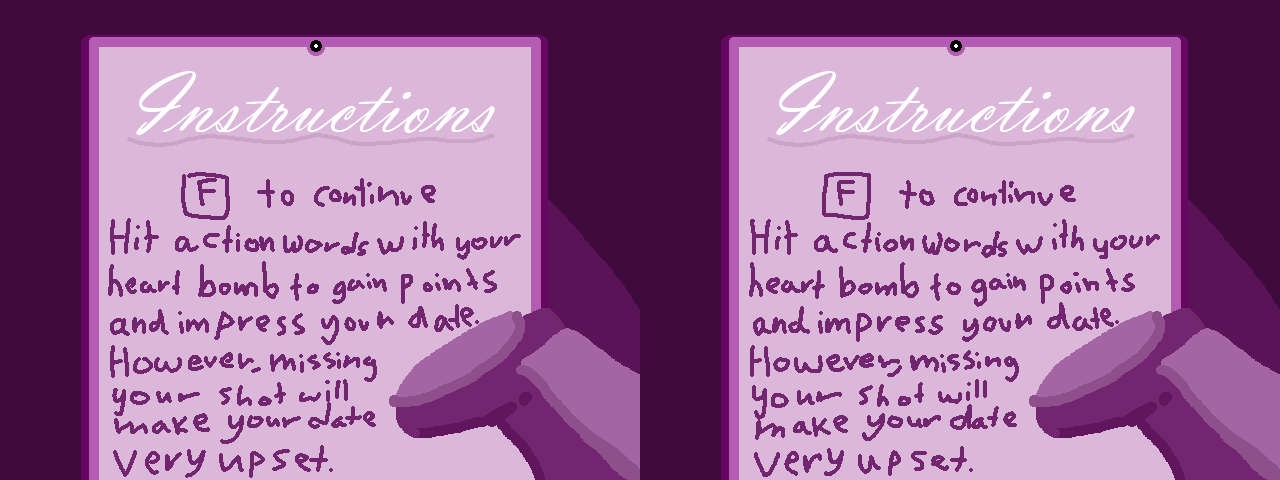 Instructions
F to continue
Hit action words with your
heart bomb to gain points
and impress your date.
However, missing
your shot will
make your date
very upset.
Instructions
F to continue
Hit action words with your
heart bomb to gain points
and impress your date.
However, missing
your shot will
make your date
very upset.